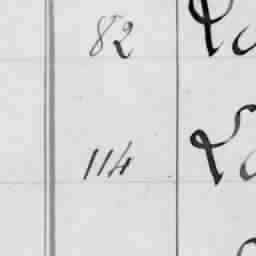 82
114